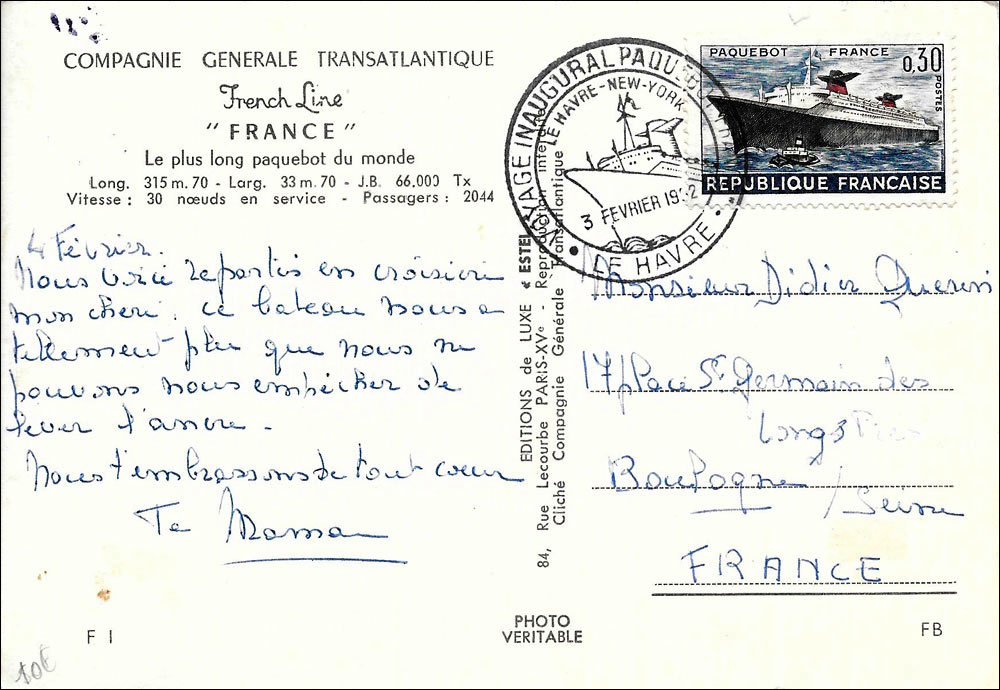 COMPAGNIE GENERALE TRANSATLANTIQUE
French Line
"FRANCE"
Le plus long paquebot du monde
Long. 315 m. 70 - Larg. 33 m. 70 - J.B. 66.000 Tx
Vitesse : 30 nœuds en service - Passagers : 2044
4 Février.
Nous voici repartis en croisière
mon cheri. ce bateau nous a
tellement plu que nous ne
pouvons nous empêcher de
lever l'ancre -
Nous t'embrassons de tout coeur
Ta Maman
F I
10€
EDITIONS de LUXE « ESTEL
84, Rue Lecourbe PARIS-XVe - Reproduction interdite
Cliché Compagnie Générale Transatlantique
PHOTO
VERITABLE
VOYAGE INAUGURAL PAQUEBOT
LE HAVRE-NEW-YORK
3 FEVRIER 1962
LE HAVRE
PAQUEBOT FRANCE
0,30
POSTES
REPUBLIQUE FRANÇAISE
Monsieur Didier Querin
17 place St Germain des
Longs
Boulogne
/ Seine
FRANCE
FB